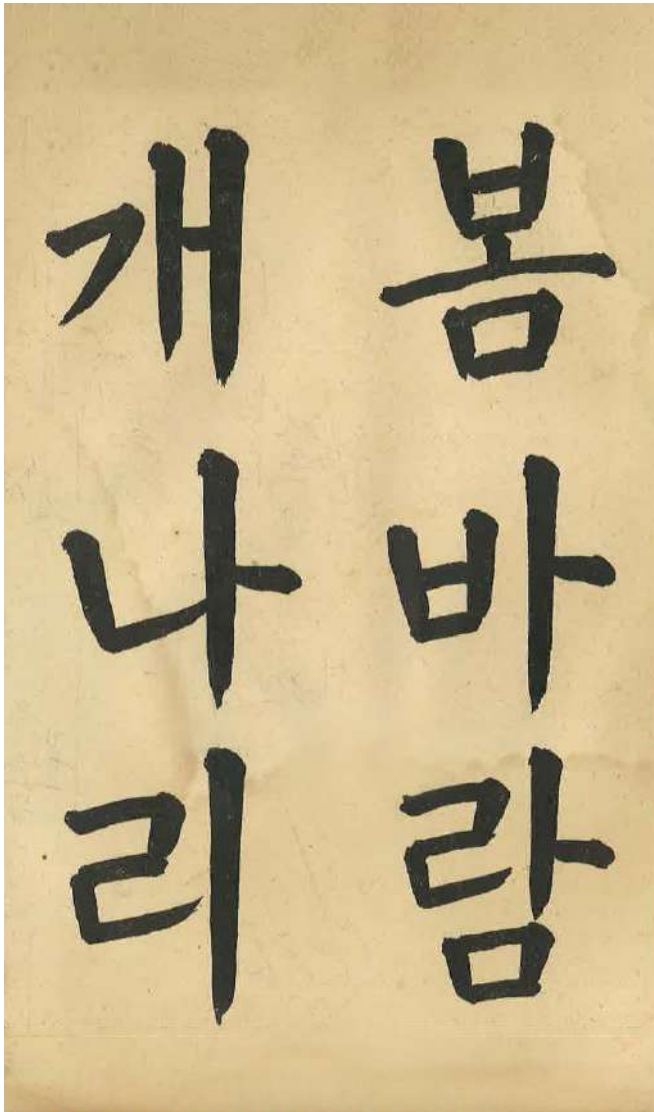 봄바람
개나리